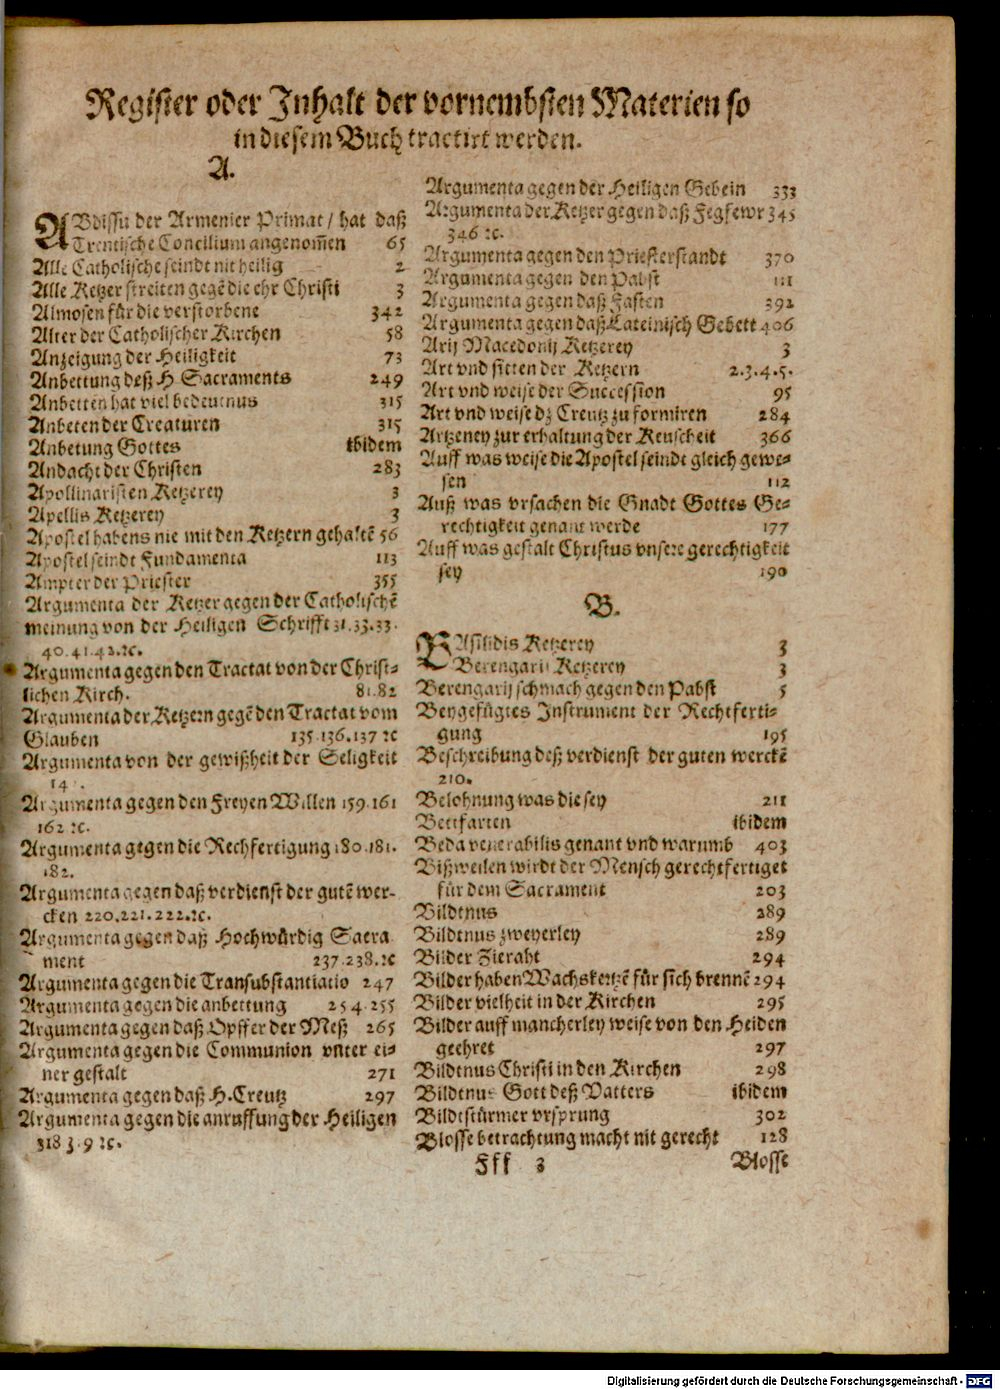 Register oder Inhalt der vornembsten Materien so
in diesem Buch tractirt werden.
A.
ABdissu der Armenier Primat / hat daß
Trentische Concilium angenom̃en 65
Alle Catholische seindt nit heilig 2
Alle Ketzer streiten gegẽ die ehr Christi 3
Almosen für die verstorbene 342
Alter der Catholischer Kirchen 58
Anzeigung der Heiligkeit 73
Anbettung deß H Sacraments 249
Anbetten hat viel bedeutnus 315
Anbeten der Creaturen 315
Anbetung Gottes ibidem
Andacht der Christen 283
Apollinaristen Ketzerey 3
Apellis Ketzerey 3
Apostel habens nie mit den Ketzern gehaltẽ 56
Apostel seindt Fundamenta 113
Ampter der Priester 355
Argumenta der Ketzer gegen der Catholischẽ
meinung von der Heiligen Schrifft 31.33.33.
40.41.42.ꝛc.
Argumenta gegen den Tractat von der Christ-
lichen Kirch. 81.82
Argumenta der Ketzern gegẽ den Tractat vom
Glauben 135.136.137 ꝛc
Argumenta von der gewißheit der Seligkeit
14 .
Argumenta gegen den Freyen Willen 159.161
162 ꝛc.
Argumenta gegen die Rechfertigung 180.181.
182.
Argumenta gegen daß verdienst der gutẽ wer-
cken 220.221.222.ꝛc.
Argumenta gegen daß Hochwürdig Sacra
ment 237.238.ꝛc
Argumenta gegen die Transubstantiatio 247
Argumenta gegen die anbettung 254.255
Argumenta gegen daß Opffer der Meß 265
Argumenta gegen die Communion vnter ei-
ner gestalt 271
Argumenta gegen daß H. Creutz 297
Argumenta gegen die anruffung der Heiligen
318 3.9 ꝛc.
Argumenta gegen der Heiligen Gebein 333
Argumenta der Ketzer gegen daß Fegfewr 345
346 ꝛc.
Argumenta gegen den Priesterstandt 370
Argumenta gegen den Pabst 111
Argumenta gegen daß Fasten 392
Argumenta gegen daß Lateinisch Gebett 406
Arij Macedonij Ketzerey 3
Art vnd sitten der Ketzern 2.3.4.5.
Art vnd weise der Succession 95
Art vnd weise dz Creutz zu formiren 284
Artzeney zur erhaltung der Keuscheit 366
Auff was weise die Apostel seindt gleich gewe-
sen 112
Auß was vrsachen die Gnadt Gottes Ge-
rechtigkeit genant werde 177
Auff was gestalt Christus vnsere gerechtigkeit
sey 190
B.
BAsilidis Ketzerey 3
Berengarij Ketzerey 3
Berengarij schmach gegen den Pabst 5
Beygefügtes Instrument der Rechtferti-
gung 195
Beschreibung deß verdienst der guten werckẽ
210.
Belohnung was die sey 211
Bettfarten ibidem
Beda venerabilis genant vnd warumb 403
Bißweilen wirdt der Mensch gerechtfertiget
für dem Sacrament 203
Bildtnus 289
Bildtnus zweyerley 289
Bilder Zieraht 294
Bilder haben Wachskertzẽ für sich brennẽ 294
Bilder vielheit in der Kirchen 295
Bilder auff mancherley weise von den Heiden
geehret 297
Bildtnus Christi in den Kirchen 298
Bildtnus Gott deß Vatters ibidem
Bildtstürmer vrsprung 302
Blosse betrachtung macht nit gerecht 128
Fff 3 Blosse
Digitalisierung gefördert durch die Deutsche Forschungsgemeinschaft - DFG